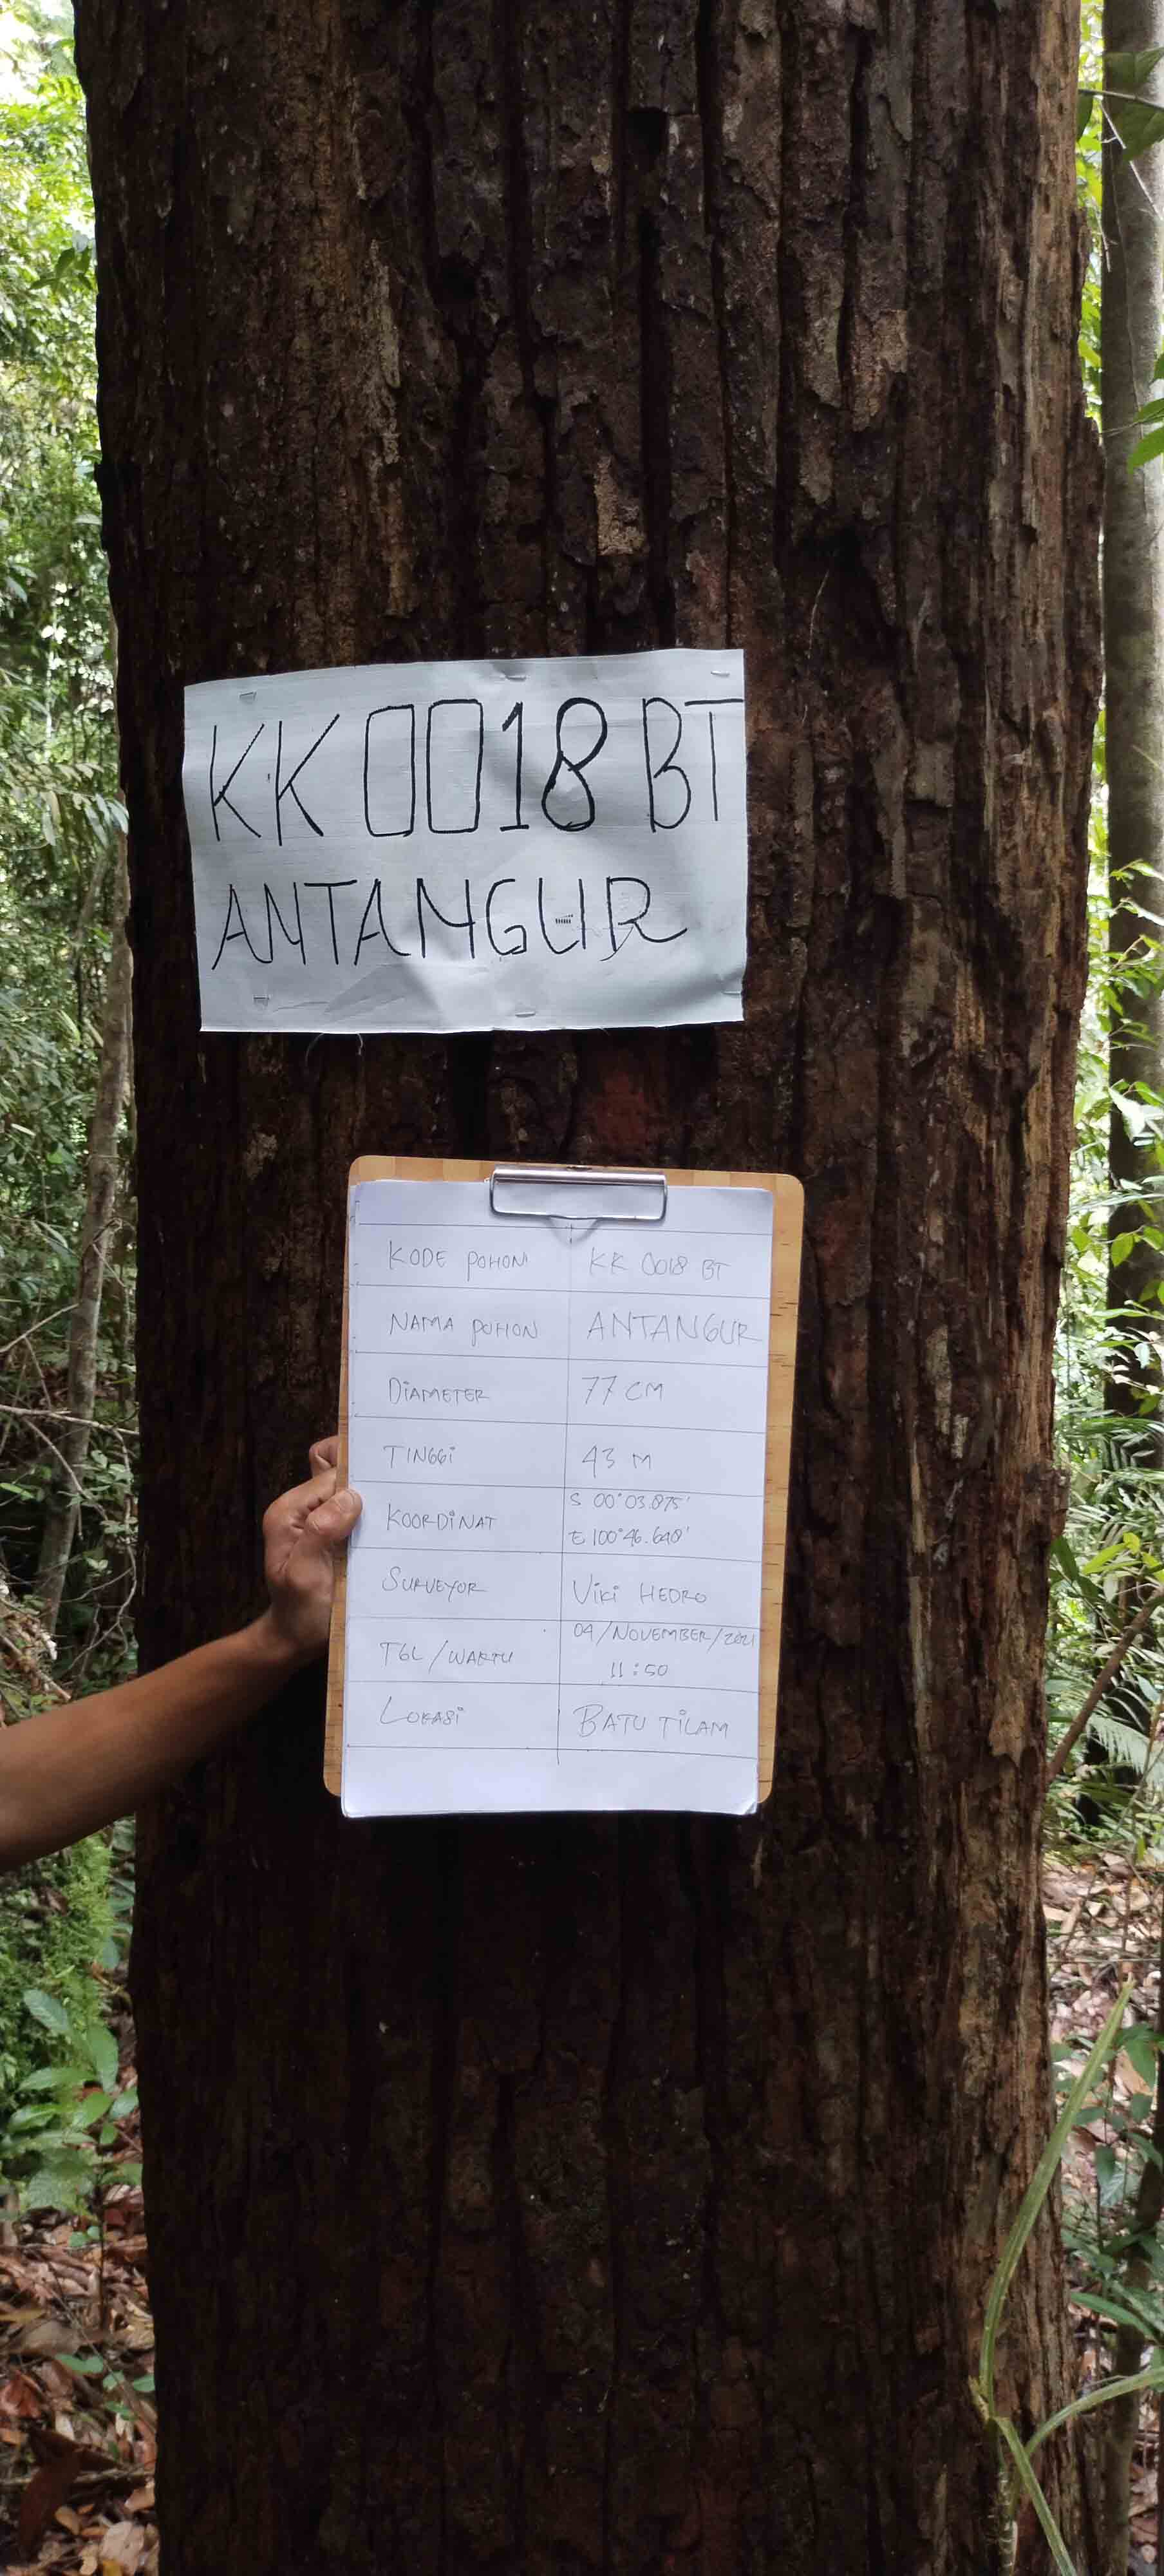 KK 0018 BT
ANTANGUR
KODE POHON KK 0018 BT
NAMA POHON ANTANGUR
DIAMETER 77 CM
TINGGI 43 M
KOORDINAT S 00°03.875'
E 100°46.640'
SURVEYOR VIKI HEDRO
TGL/WAKTU 04/NOVEMBER/2021
11:50
LOKASI BATU TILAM